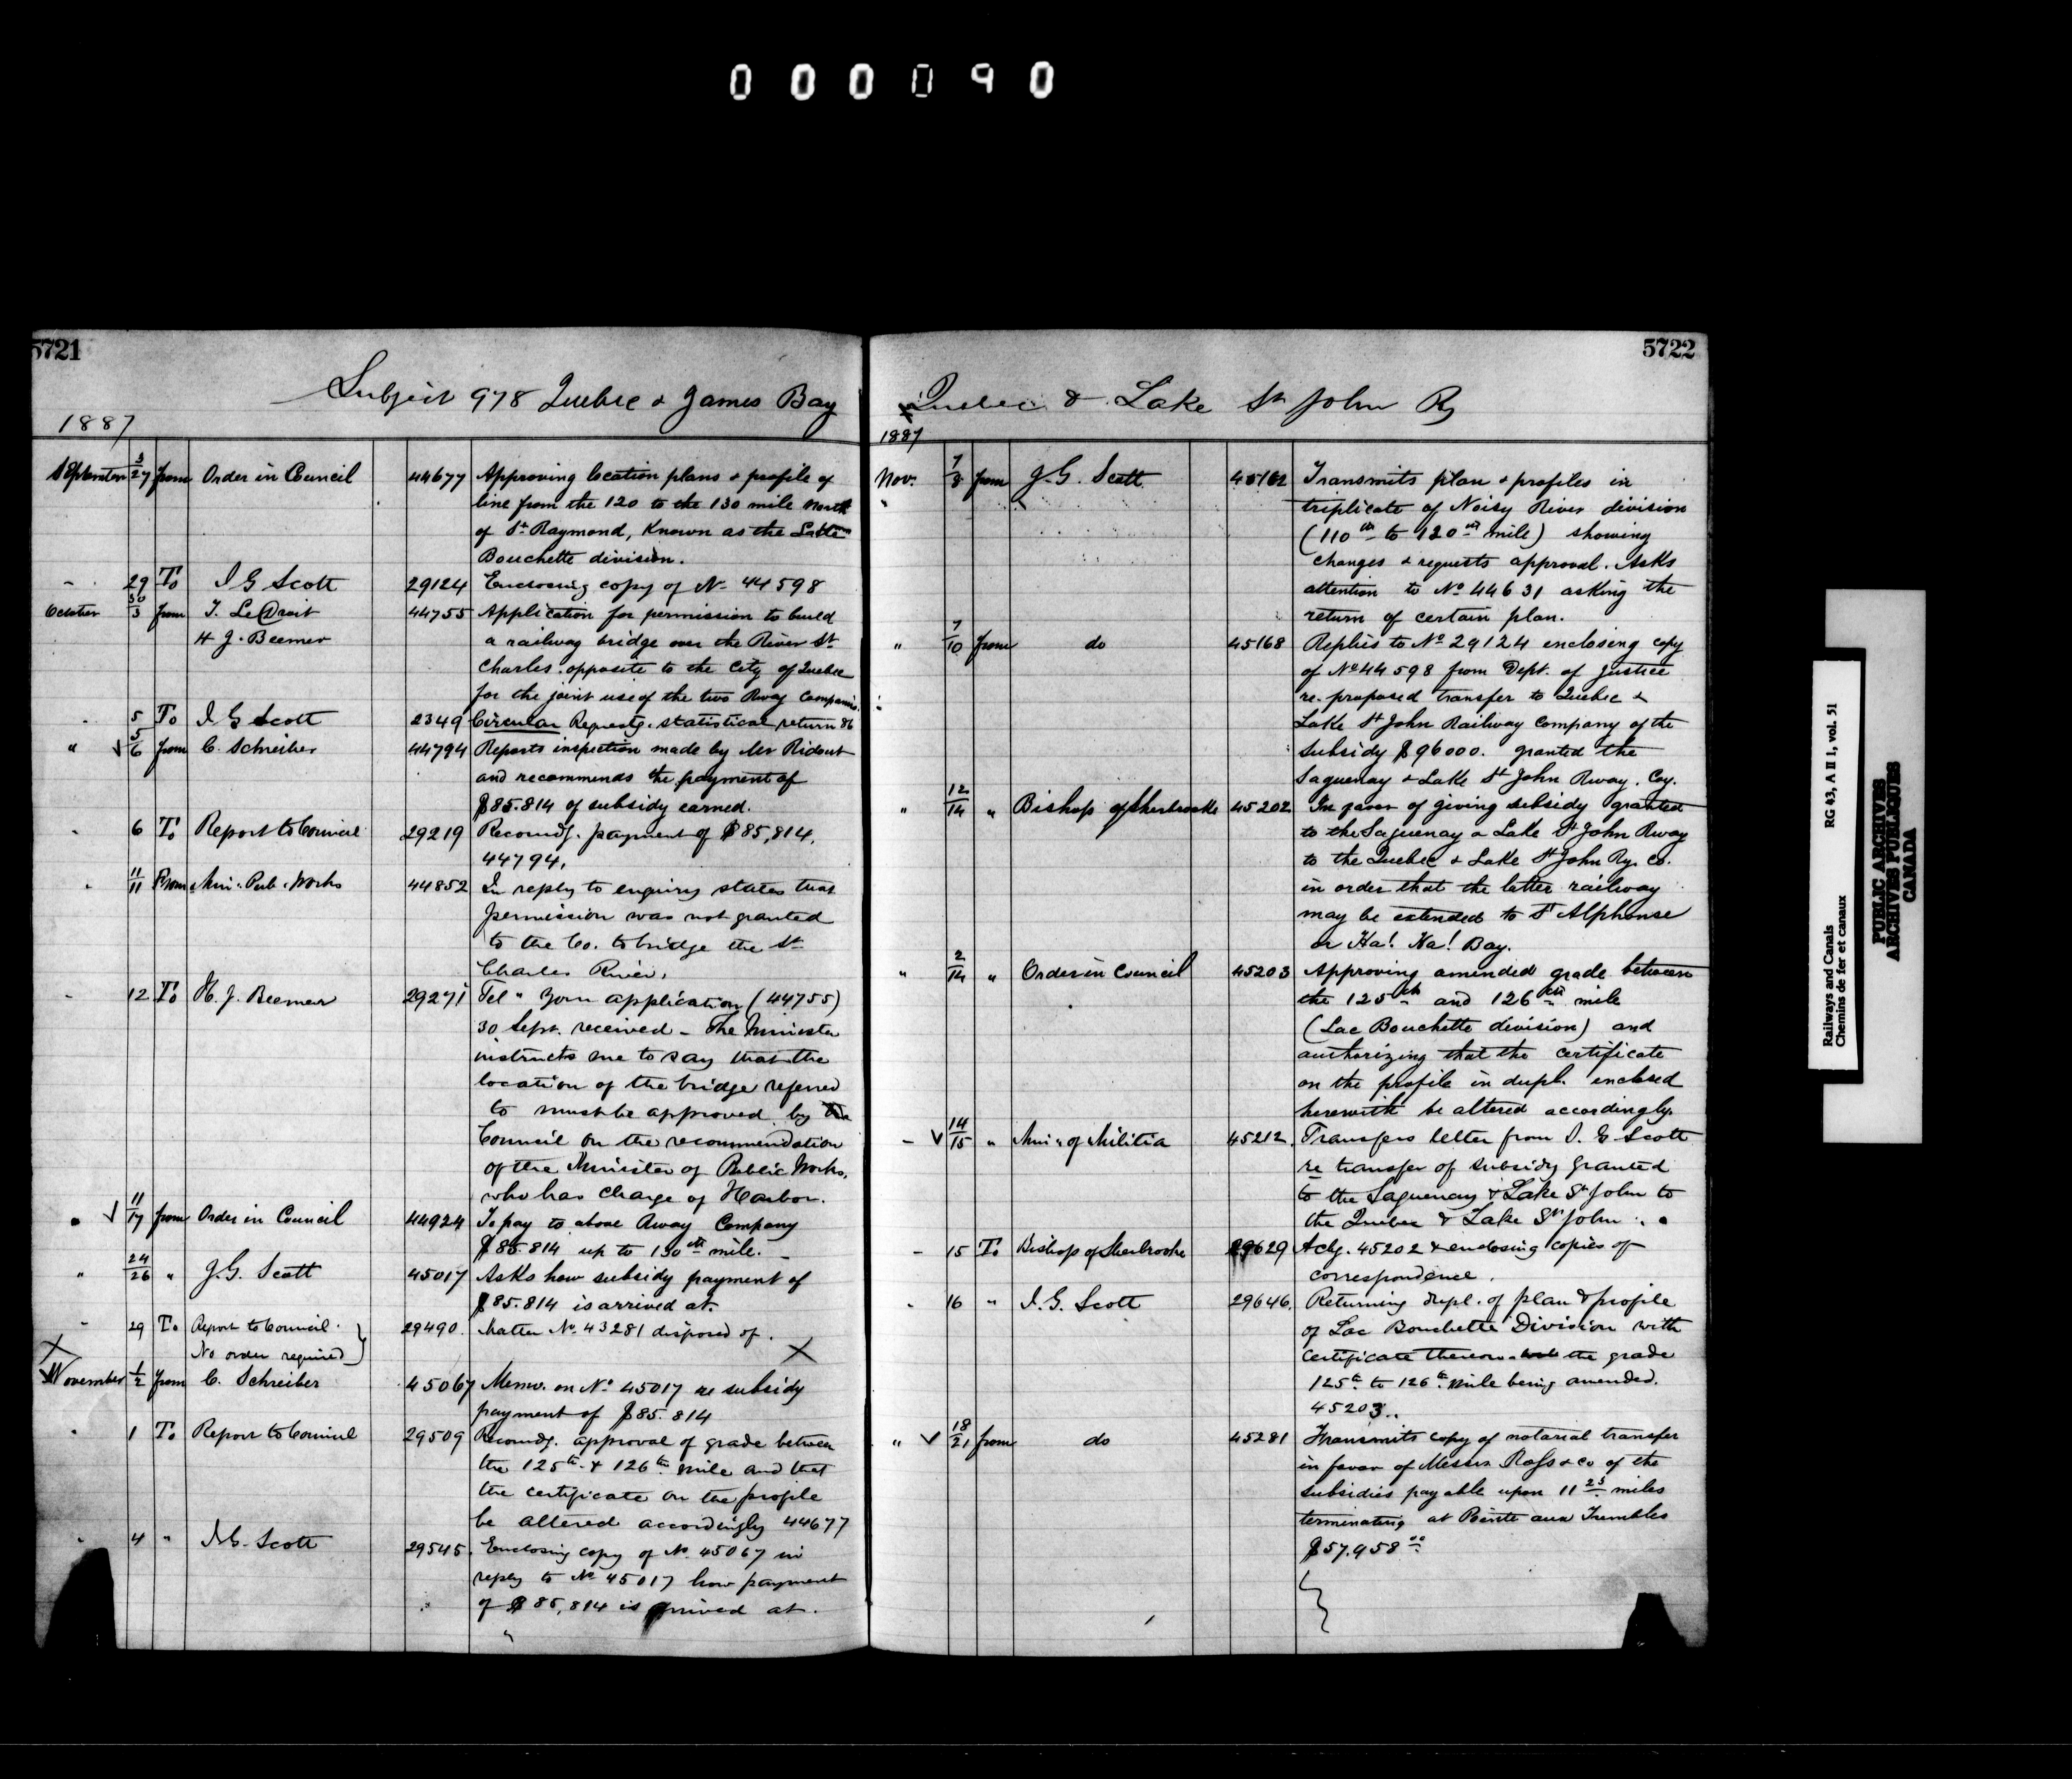 000090
5721
Subject 978 Quebec & James Bay
1887
September 3/27 from Order in Council 44677 Approving location plans & profile of
line from the 120 to the 130 mile North
of St Raymond, Known as the Lake
Bouchette division.
" 29 To J G Scott 29124 Enclosing copy of No 44598
October 30/3 from T. LeDroit 44755 Application for permission to build
H J. Beemer a railway bridge over the River St
Charles opposite to the City of Quebec
for the joint use of the two Rway Companies.
" 5 To J G Scott 2349 Circular Requestg. statistical return 86
" 5/6 from C. Schreiber 44794 Reports inspection made by Mr Ridout
and recommends the payment of
$85.814 of subsidy earned.
" 6 To Report to Council 29219 Recomdg. payment of $85,814.
44794.
" 11/11 From Min. Pub. Works 44852 In reply to enquiry states that
permission was not granted
to the Co. to bridge the St
Charles River.
" 12 To H. J. Beemer 29271 Tel " Your application (44755)
30 Sept. received - The Minister
instructs me to say that the
location of the bridge referred
to must be approved by the
Council on the recommendation
of the Minister of Public Works,
who has charge of Harbor.
" 11/17 from Order in Council 44924 To pay to above Rway Company
$85.814 up to 130th mile. -
" 24/26 " J.G. Scott 45017 Asks how subsidy payment of
$85.814 is arrived at.
" 29 To Report to Council 29490. Matter No. 43281 disposed of.
No order required
November 1/2 from C. Schreiber 45067 Memo. on No 45017 re subsidy
payment of $85.814
" 1 To Report to Council 29509 Recomdg. approval of grade between
the 125th & 126th mile and that
the certificate on the profile
be altered accordingly 44677
" 4 " J.G. Scott 29545. Enclosing copy of No. 45067 in
reply to No 45017 how payment
of $85,814 is arrived at.
5722
Quebec & Lake St John Ry
1887
Nov. 7/8 from J.G. Scott 45162 Transmits plan & profiles in
triplicate of Noisy River division
(110th to 120th mile) showing
changes & requests approval. Asks
attention to No 44631 asking the
return of certain plan.
" 7/10 from do 45168 Replies to No 29124 enclosing copy
of No 44598 from Dept. of Justice
re. proposed transfer to Quebec &
Lake St John Railway Company of the
Subsidy $96000. granted the
Saguenay & Lake St John Rway. Coy.
" 12/14 " Bishop of Sherbrooke 45202 In favor of giving subsidy granted
to the Saguenay & Lake St John Rway
to the Quebec & Lake St John Ry. Co.
in order that the latter railway
may be extended to St Alphonse
or Ha! Ha! Bay.
" 2/14 " Order in Council 45203 Approving amended grade between
the 125th and 126th mile
(Lac Bouchette division) and
authorizing that the certificate
on the profile in dupl. enclosed
herewith be altered accordingly.
" 14/15 " Min. of Militia 45212. Transfers letter from J. G Scott
re transfer of subsidy granted
to the Saguenay & Lake St John to
the Quebec & Lake St John.
" 15 To Bishop of Sherbrooke 29629 Ackg. 45202 & enclosing copies of
correspondence.
" 16 " J.G. Scott 29646. Returning dupl. of plan & profile
of Lac Bouchette Division with
Certificate thereon the grade
125th to 126th mile being amended.
45203..
" 18/21 from do 45281 Transmits copy of notarial transfer
in favor of Messrs Ross & co of the
subsidies payable upon 11 25 miles
terminating at Pointe aux Trembles
$57.958 00
Railways and Canals
Chemins de fer et canaux
RG 43, A II 1, vol. 51
PUBLIC ARCHIVES
ARCHIVES PUBLIQUES
CANADA